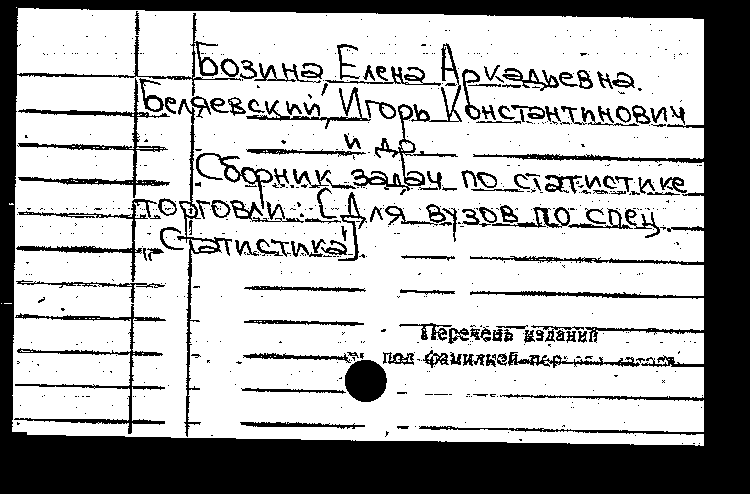 Бозина, Елена Аркадьевна.
Беляевский, Игорь Константинович
и др.
Сборник задач по статистике
торговли: [Для вузов по спец.
"Статистика"]
Перечень изданий
см. под фамилией первого автора